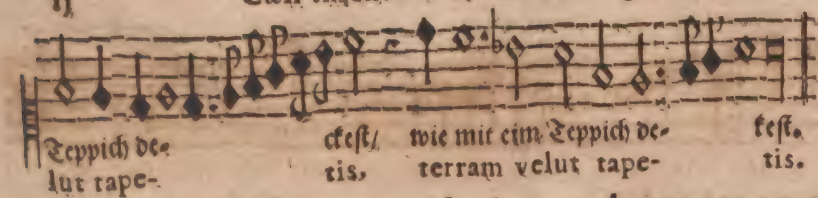 Teppich de-
ckest/ wie mit eim Teppich de- kest.
lut tape- tis, terram velut tape- tis.